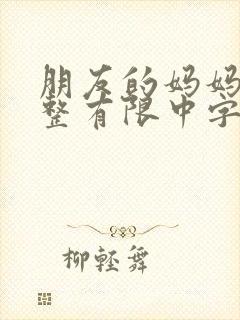 朋友的妈妈
整有限中字
柳轻舞